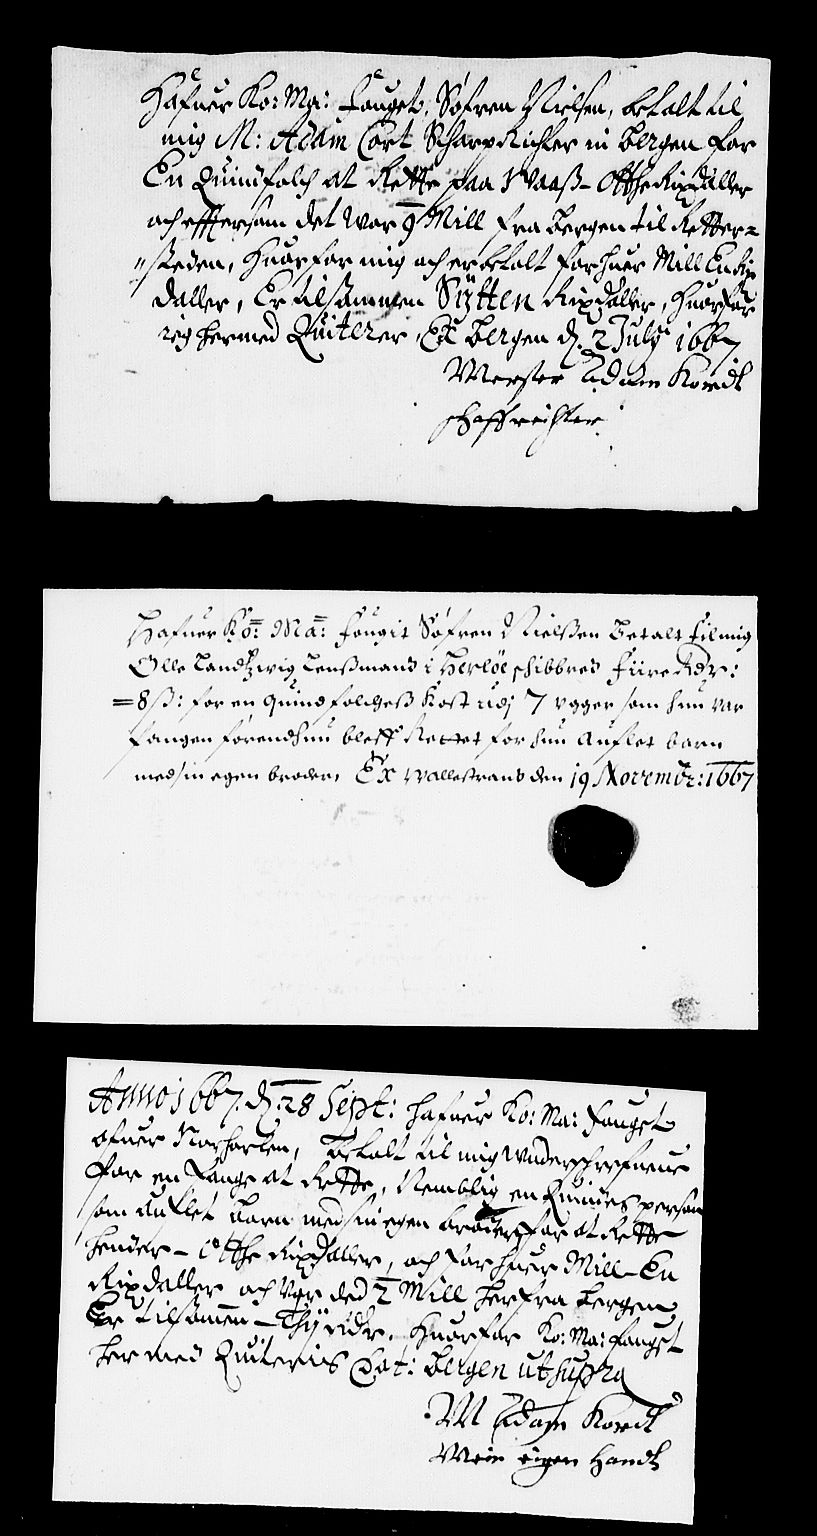 Hafuer Ko: Ma: Fouget, Søfren Nielsen, betalt til
mig M: Adam Cort Scharp Richter in Bergen for
En Quindfolch at Rette paa Waass - Otthe Rixdaller
och efftersom det war 9 Mill fra bergen til Retter=
"steden, huorfor mig och er betalt for huer Mill En Rix
daller, Er tilsammen Sÿtten Rixdaller, huorfor
ieg hermed Quiterer, Ex bergen d. 2 Julij 1667
Meister Adam Kordt
scharffrichter
Hafuer Ko: Ma: Fougit Søfren Nielssen Betalt til mig
Olle Landtzwig Lenssmand i Herløe schibbred Fiire Rdr:
= 8 ss: for en quindfolchess Kost udj 7 vgger som hun var
fangen førend hun bleff Rettet for hun Auflet barn
med sin egen broder, Ex Wallestrand den 19 Novembr: 1667
Anno 1667. d. 28 Sept: hafuer Ko: Ma: fouget
ofuer Norhorlen, Betalt til mig underschrefuene
for en Fange at Rette, Nemblig en Quindes person
som Auflet Barn med sin egen broder, for at Rette
hender - Otthe Rixdaller, och for huer Mill - En
Rixdaller och Var ded 2 Mill herfra bergen
Er tilsamen - Thÿ rdr. huorfor Ko: Ma: fouget
hermed Quiteris Dat: bergen ut supra
M Adam Kordt
Mein eigen Handt